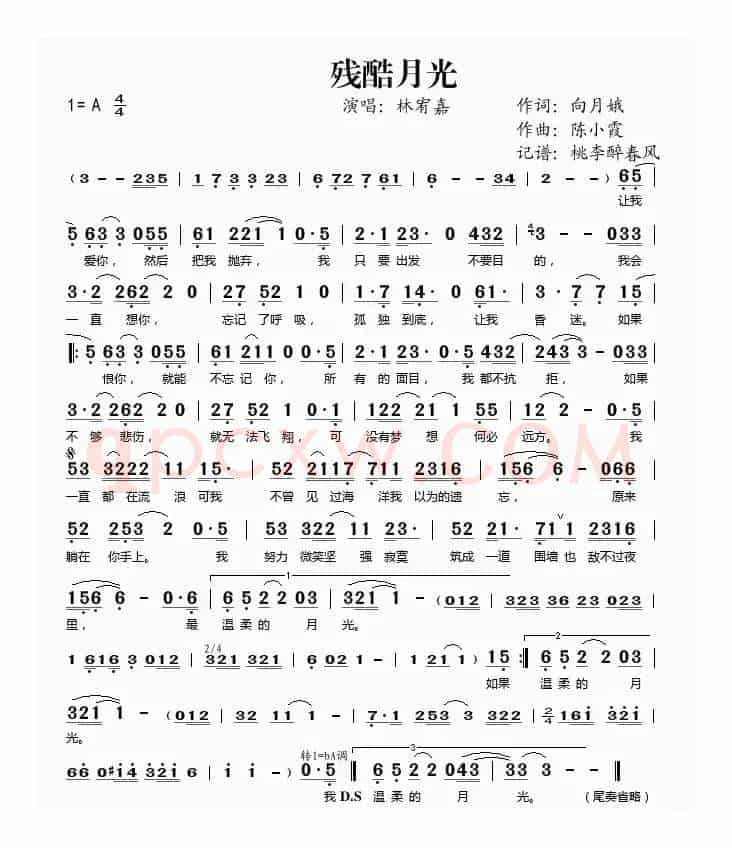 残酷月光
1= A 4/4 演唱：林宥嘉 作词：向月娥
作曲：陈小霞
记谱：桃李醉春风
( 3 - - 235 | 1 7 3 3 23 | 6 72 7 61 | 6 - - 34 | 2 - - ) 65 |
让我
5 63 3 055 | 61 221 1 0·5 | 2·1 23· 0 432 | 4 3 - - 033 |
爱你， 然后 把我 抛弃， 我 只 要 出发 不要目 的， 我会
3·2 262 2 0 | 27 52 1 0 | 1·7 14· 0 61· | 3·7 7 15· |
一 直 想你， 忘记 了呼 吸， 孤 独 到底， 让我 昏 迷。 如果
‖: 5 63 3 055 | 61 211 0 0·5 | 2·1 23· 5 432 | 243 3 - 033 |
恨你， 就能 不忘记 你， 所 有 的 面目， 我 都不抗 拒， 如果
3·2 262 2 0 | 27 52 1 0·1 | 122 21 1 55 | 12 2 - 0·5 |
不 够 悲伤， 就无 法飞 翔， 可 没有梦 想 何必 远方。 我
𝄋
53 3222 11 15· | 52 2117 711 2316 | 156 6 - 066 |
一直 都 在流 浪 可我 不曾 见 过海 洋我 以为的遗 忘， 原来
52 253 2 0·5 | 53 322 11 04 | 52 21· 71 1 ∨ 2316 |
躺在 你手上。 我 努力 微笑坚 强 寂寞 筑成 一道 围墙 也 敌不过夜
1
156 6 - 0·6 | 6 5 2 2 03 | 321 1 - (012 | 323 36 23 023 |
里， 最 温 柔 的 月 光。
2/4
1 616 3 012 | 321 321 | 6 02 1 - | 1 21 1 ) 15· :‖ 6 5 2 2 03 |
2
如果 温 柔 的 月
321 1 - (012 | 32 11 1 - | 7·1 253 3 322 | 2/4 161 321 |
光。
转1=bA调 3
66 0#14 321 6 | 1 1 - ) 0·5 ‖ 6 5 2 2 043 | 33 3 - - ‖
我 D.S 温 柔 的 月 光。 (尾奏省略)
qpcxw.COM